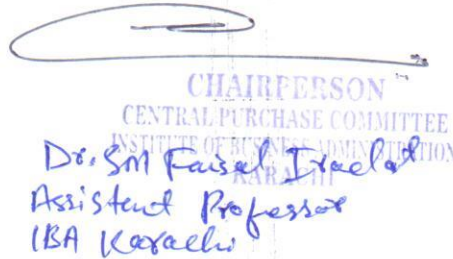 CHAIRPERSON
CENTRAL PURCHASE COMMITTEE
INSTITUTE OF BUSINESS ADMINISTRATION
KARACHI
Dr. SM Faisal Iradat
Assistant Professor
IBA Karachi